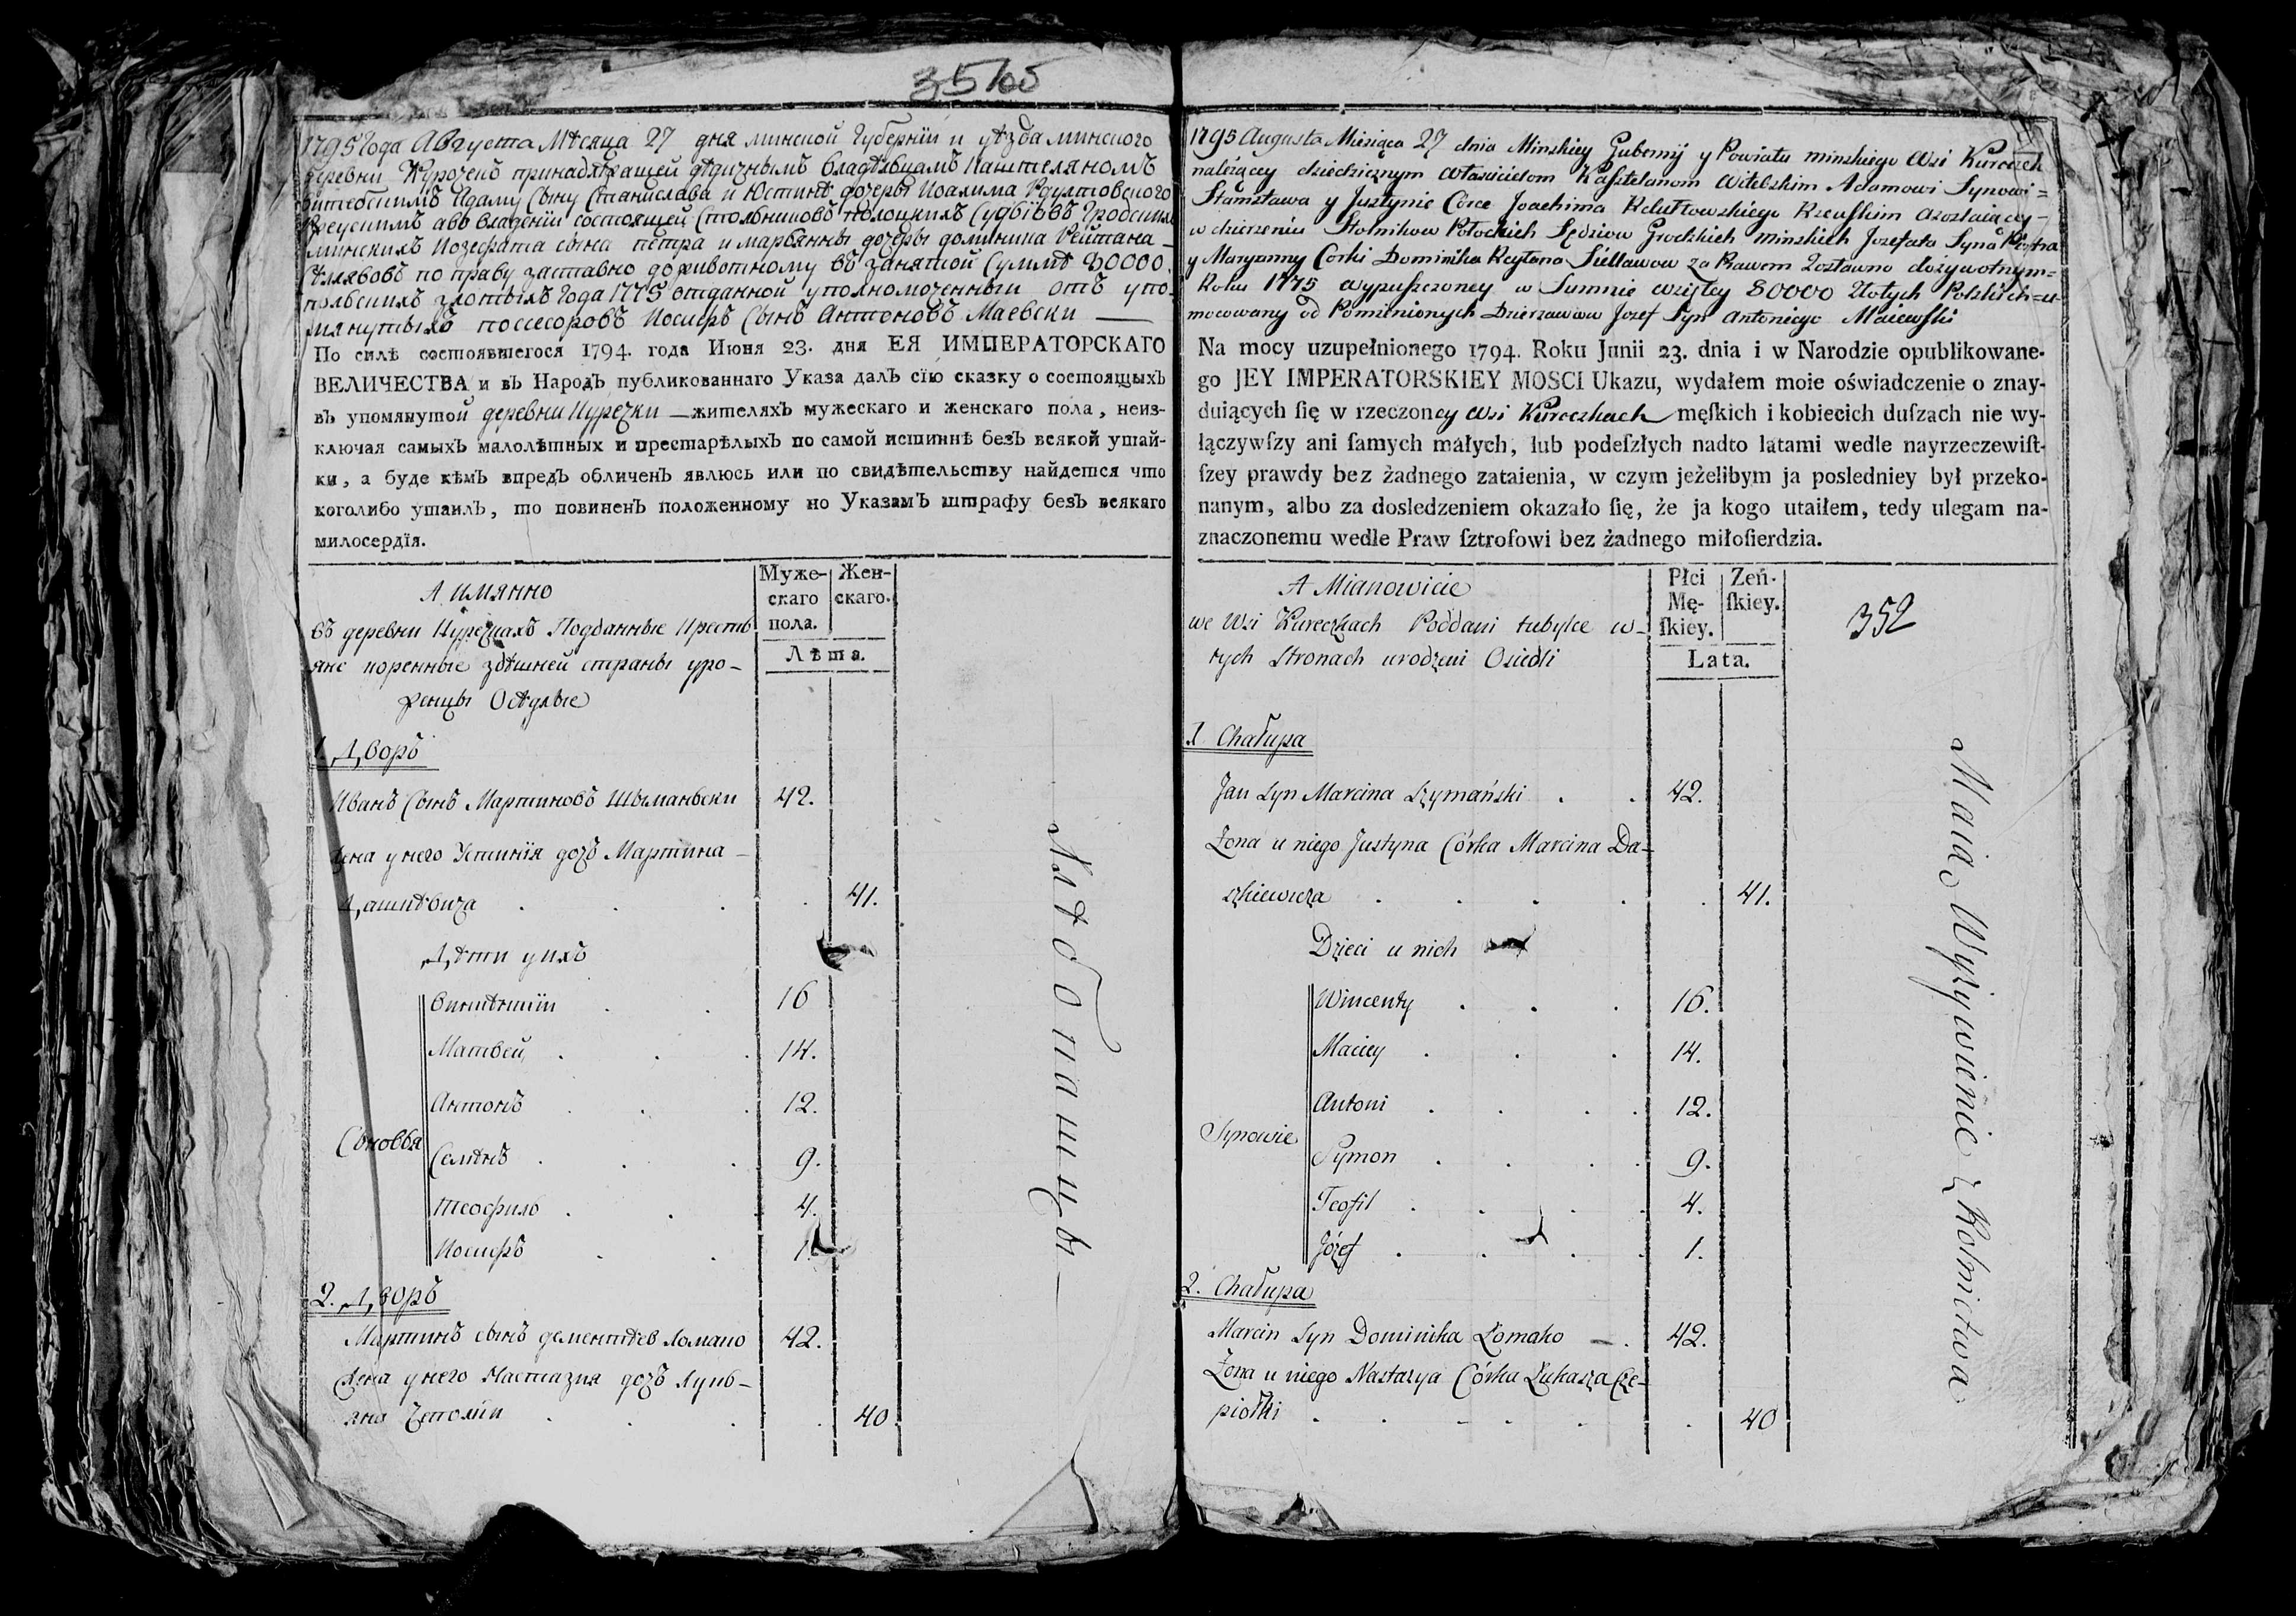 3565
1795 Года Августа Мѣсяца 27 дня минской Губернїи и уѣзда минского
деревни Курочекъ принадлѣжащей дѣдичнымъ владѣльцамъ Каштеляномъ
витебскимъ Адаму Сыну Станислава и Юстинѣ дочеры Иоахима
або владѣнїи состоящей Стольниковъ полоцкихъ Судьїовъ Гродскихъ
минскихъ Иозефата сына петра и марьянны дочеры доминика Рейтана
по праву заставно доживотному въ занятой Суммѣ 80000
польскихъ злотыхъ Года 1775 отданной уполномоченный отъ упо-
мянутыхъ поссесоровъ Иосифъ Сынъ Антоновъ Маевски
По силѣ состоявшегося 1794. года Июня 23. дня ЕЯ ИМПЕРАТОРСКАГО
ВЕЛИЧЕСТВА и въ Народъ публикованнаго Указа далъ сїю сказку о состоящыхъ
въ упомянутой деревни Куречки жителяхъ мужескаго и женскаго пола, неиз-
ключая самыхъ малолѣтных и престарѣлыхъ по самой истиннѣ безъ всякой утай-
ки, а буде кѣмъ впредъ обличенъ явлюсь или по свидѣтельству найдется что
коголибо утаилъ, то повиненъ положенному по Указамъ штрафу безъ всякаго
милосердїя.
А имянно
Муже-
скаго
пола.
Жен-
скаго.
въ деревни Куречкахъ Подданные Крестъ
яне коренные здѣшней страны уро-
женцы Осѣдлые
Лѣта.
1. Дворъ
Иванъ Сынъ Мартиновъ Шыманьски 42.
Жена у него Устинїя дочъ Мартина
Дашкѣвича 41.
Дѣти у ихъ
Сыновья
Викѣнтїи 16
Матвей 14.
Антонъ 12.
Семѣнъ 9.
Теофиль 4.
Иосифъ 1.
2. Дворъ
Мартинъ сынъ дементѣев Ломако 42.
Жена у него Настазия дочъ Лукь-
яна 40.
1795 Augusta Miesiąca 27 dnia Minskiey Gubernij y Powiatu minskiego Wsi Kureczek
należącey dziedzicznym właścicielom Kasztelanom Witebskim Adamowi Synowi=
Stanisława y Justynie Córce Joachima Rzewuskim a zostaiącey-
w dzierzeniu Stolnikow Połockich Sędziow Grodzkich minskich Jozefata Syna Piotra
y Maryanny Corki Dominika Reytana Siellawow za Prawem Zostawno dożywotnym=
Roku 1775 wypuszczoney w Summie wziętey 80000 Złotych Polskich=u-
mocowany od Pomienionych Dzierzawcow Jozef Syn Antoniego Maiewski
Na mocy uzupełnionego 1794. Roku Junii 23. dnia i w Narodzie opublikowane-
go JEY IMPERATORSKIEY MOSCI Ukazu, wydałem moie oświadczenie o znay-
duiących ſię w rzeczoney Wsi Kureczkach męſkich i kobiecich duſzach nie wy-
łączywſzy ani ſamych małych, lub podeſzłych nadto latami wedle nayrzeczewiſt-
ſzey prawdy bez żadnego zataienia, w czym jeżelibym ja posledniey był przeko-
nanym, albo za dosledzeniem okazało ſię, że ja kogo utaiłem, tedy ulegam na-
znaczonemu wedle Praw ſztrofowi bez żadnego miłoſierdzia.
A Mianowicie
Płci
Mę-
ſkiey.
Zeń-
ſkiey.
352
we Wsi Kureczkach Poddani tubylce w-
tych stronach urodzeni Osiedli
Lata.
1 Chałupa
Jan Syn Marcina Szymański 42.
Żona u niego Justyna Córka Marcina Da-
szkiewicza 41.
Dzieci u nich
Synowie
Wincenty 16.
Maciey 14.
Antoni 12.
Symon 9.
Teofil 4.
Józef 1.
2. Chałupa
Marcin Syn Dominika Łomako 42.
Żona u niego Nastazya Córka Łukasza Cze-
piołki 40
Maią Wyżywienie z Rolnictwa